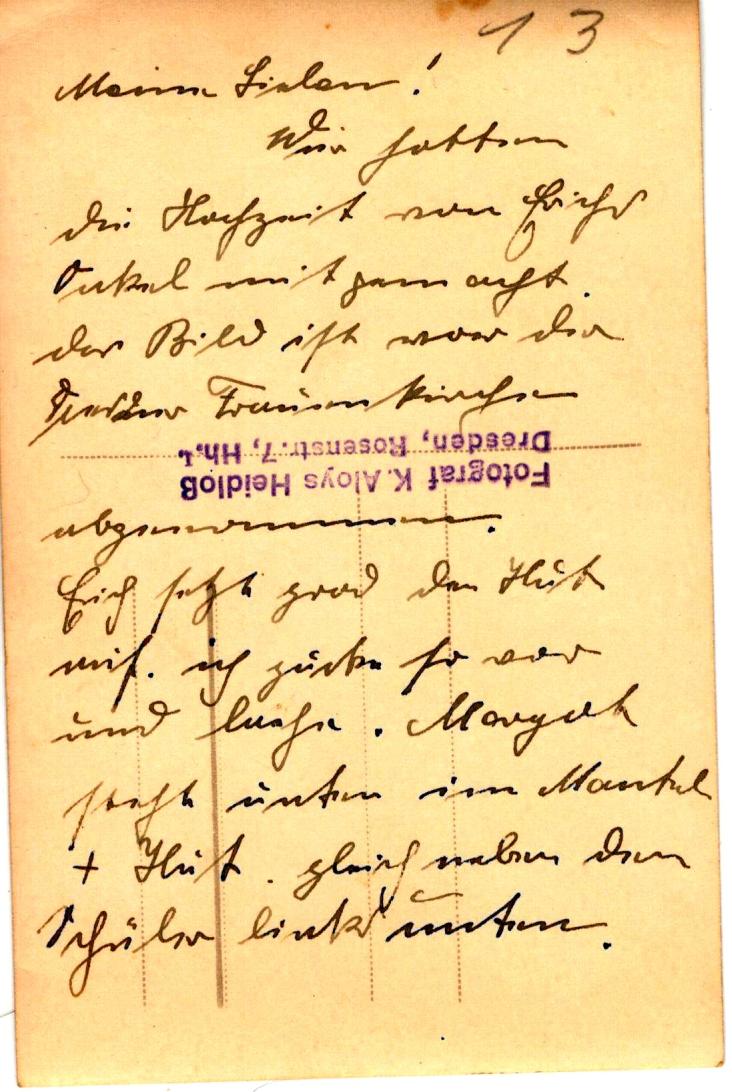 13
Meine Lieben!
Wir hatten
die Hochzeit von Erichs
Onkel mitgemacht.
das Bild ist vor der
Dresdner Frauenkirche
Fotograf K. Aloys Heidloß
Dresden, Rosenstr. 7, Hh. 1.
abgenommen.
Erich setzt grad den Hut
auf. ich gucke so vor
und lache.
steht unten im Mantel
+ Hut. gleich neben dem
Schüler links unten.